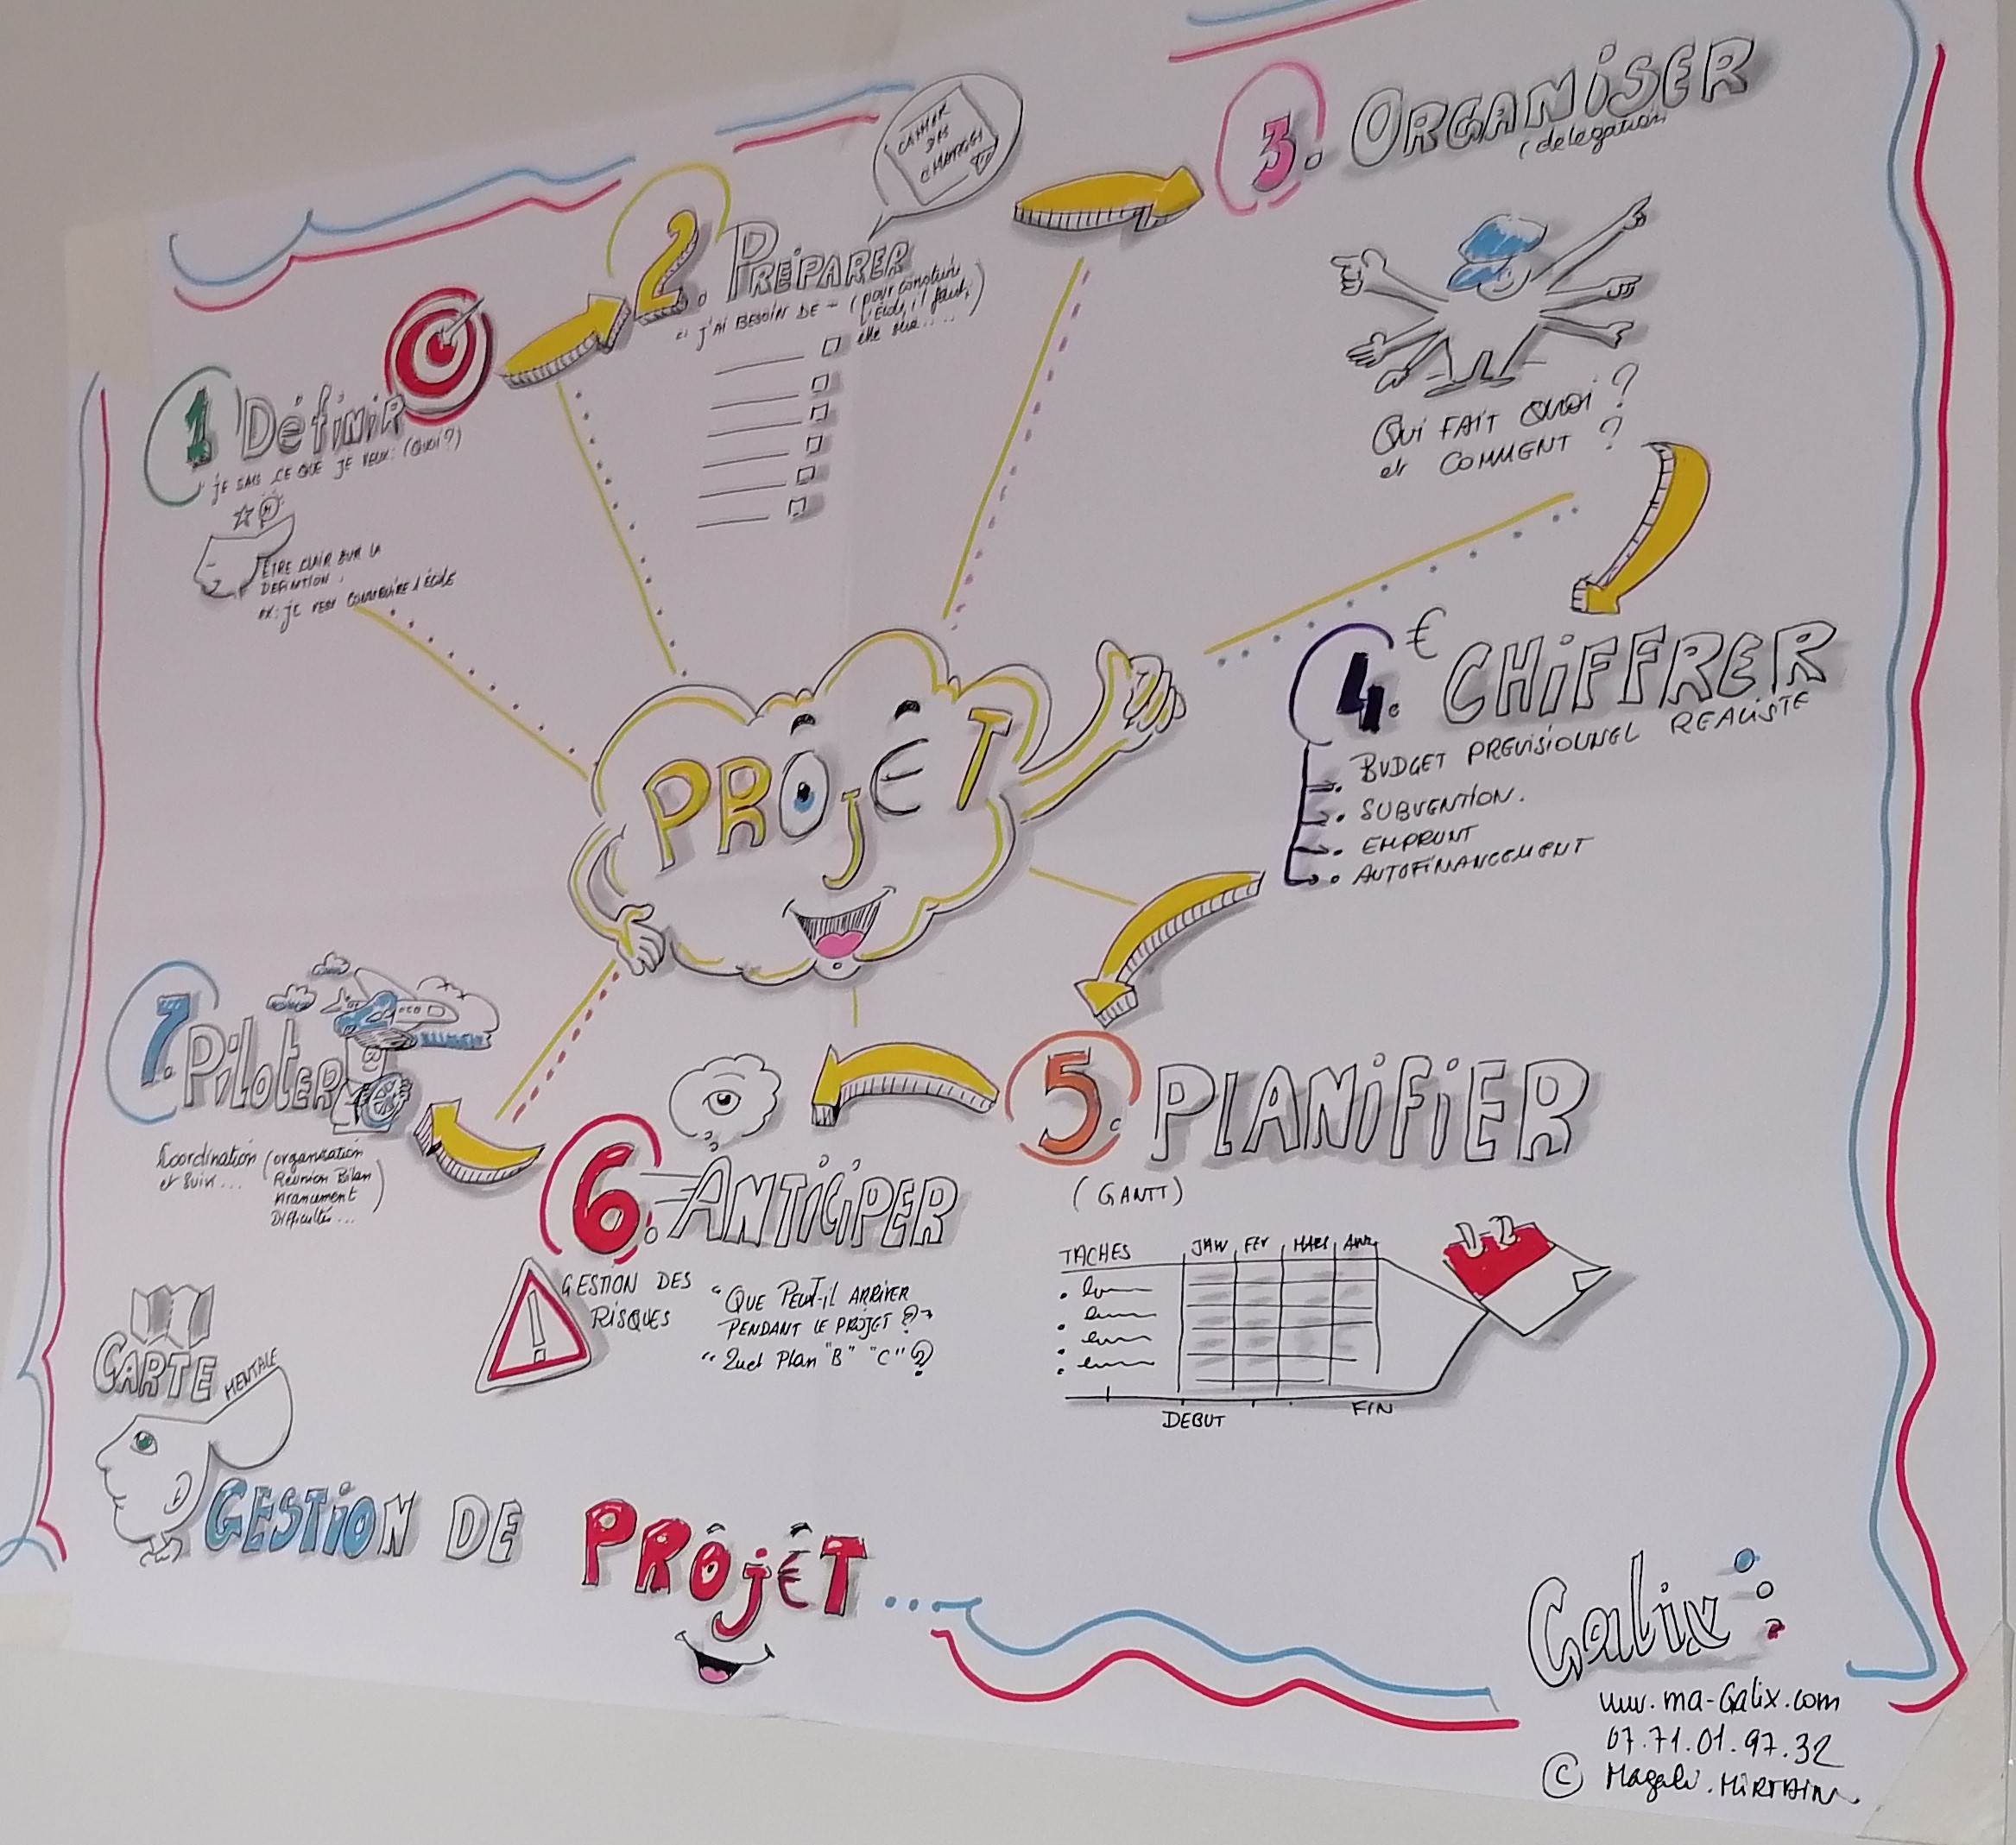 1 Définir
je sais ce que je veux: (Quoi?)
ÊTRE CLAIR SUR LA
DEFINITION.
ex: je veux construire l'école
2. PRÉPARER
CAHIER
DES
CHARGES
"J'AI BESOIN DE" (pour construire
l'école, il faut,
3. ORGANISER
(délégation)
QUI FAIT QUOI ?
et COMMENT ?
4. € CHIFFRER
BUDGET PREVISIONNEL REALISTE
SUBVENTION.
EMPRUNT
AUTOFINANCEMENT
PROJET
5. PLANIFIER
(GANTT)
TACHES JAN FEV MARS AVR
DEBUT FIN
6. ANTICIPER
GESTION DES
RISQUES
"QUE PEUT-IL ARRIVER
PENDANT LE PROJET ?"
"Quel Plan "B" "C" ?
7. PiloTER
Coordination (organisation
et suivi... Réunion Bilan
Difficultés...)
CARTE
MENTALE
GESTION DE PROJET...
Galix
www.ma-Galix.com
07.71.01.97.32
© Magali.